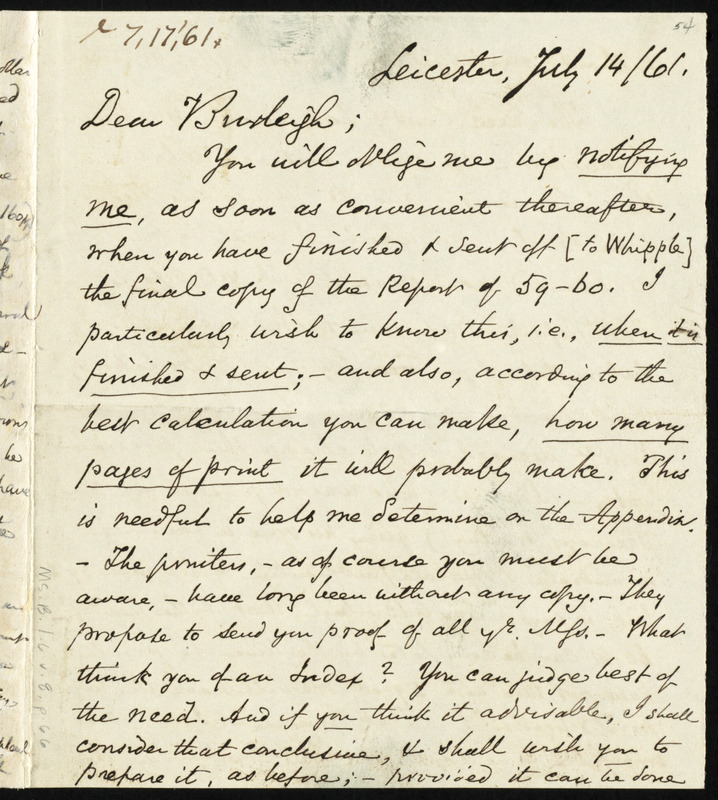 54
r 7,17,'61.
Leicester, July 14/61.
Dear Burleigh;
You will oblige me by notifying
me, as soon as convenient thereafter,
when you have finished & sent off [to Whipple]
the final copy of the Report of 59-60. I
particularly wish to know this, i.e., when it is
finished & sent; - and also, according to the
best calculation you can make, how many
pages of print it will probably make. This
is needful to help me determine on the Appendix.
- The printers, - as of course you must be
aware, - have long been without any copy. - They
propose to send you proof of all yr. Mss. - What
think you of an Index? You can judge best of
the need. And if you think it advisable, I shall
consider that conclusive, & shall wish you to
prepare it, as before; - provided it can be done
Ms. B. 1.6 v. 8 p 66
ed
he
have